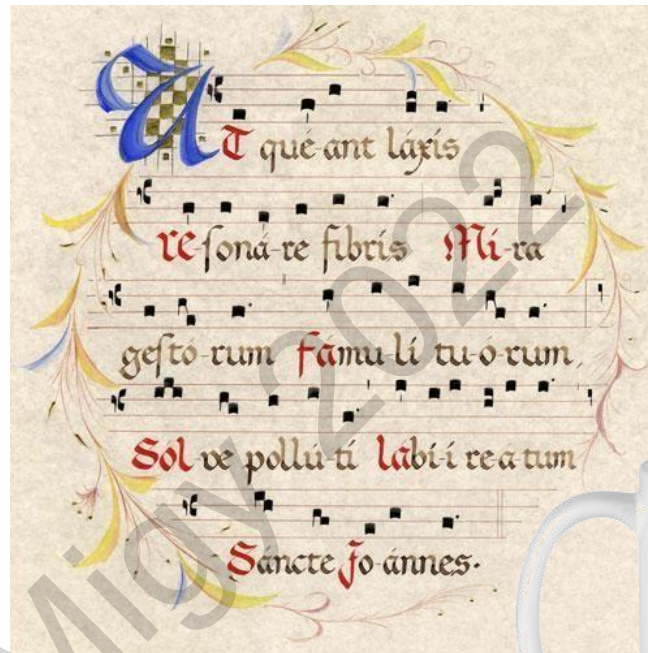 UT qué-ant láxis
re soná-re fibris Mi-ra
gestó-rum Fámu-lí tu-ó-rum,
Sol ve pollú-ti labí-i re-a-tum
Sáncte Jo-ánnes.
Migy 2022